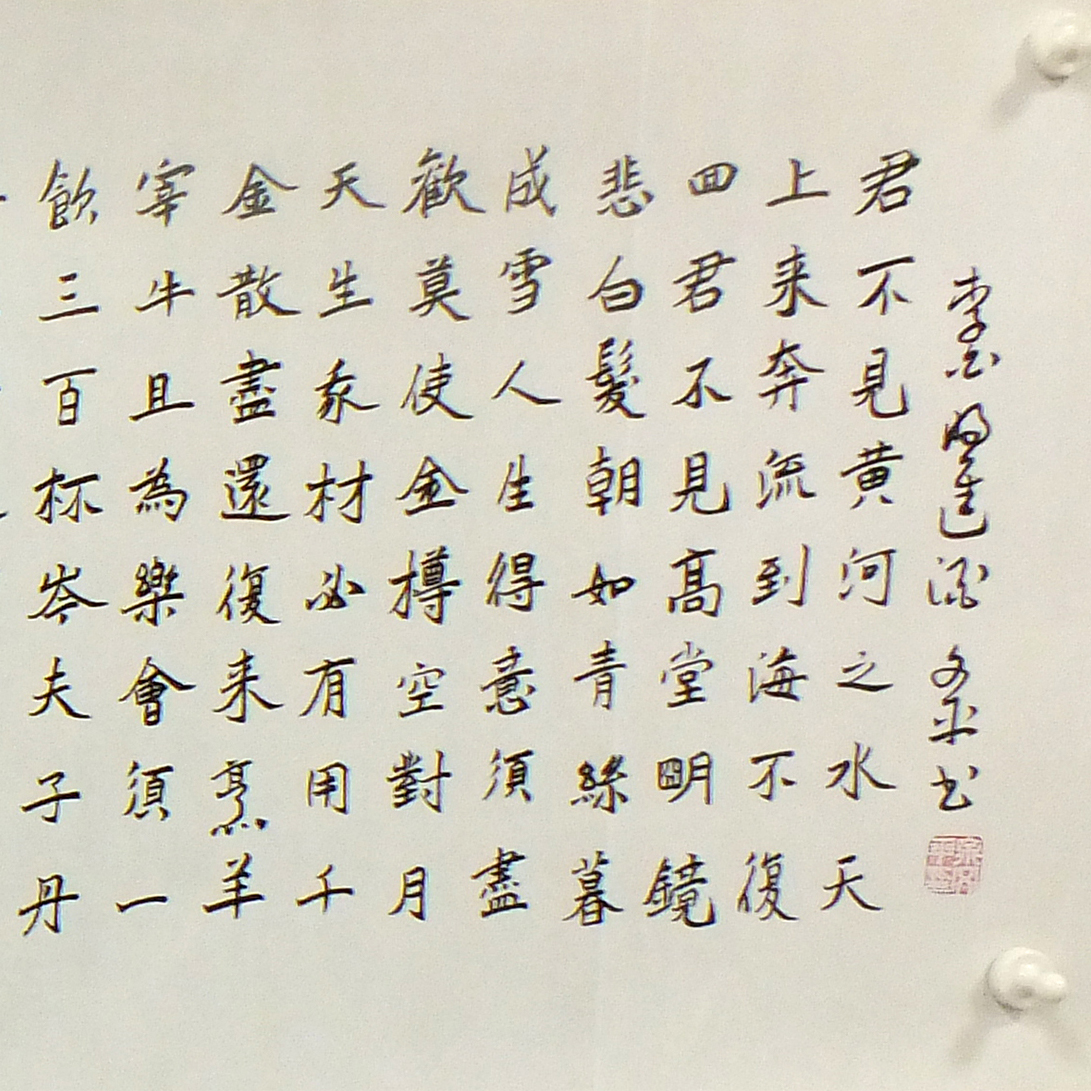 李白將進酒 文平书
君不見黄河之水天
上来奔流到海不復
回君不見高堂朙鏡
悲白髮朝如青絲暮
成雪人生得意須盡
歡莫使金樽空對月
天生我材必有用千
金散盡還復来烹羊
宰牛且為樂會須一
飲三百杯岑夫子丹